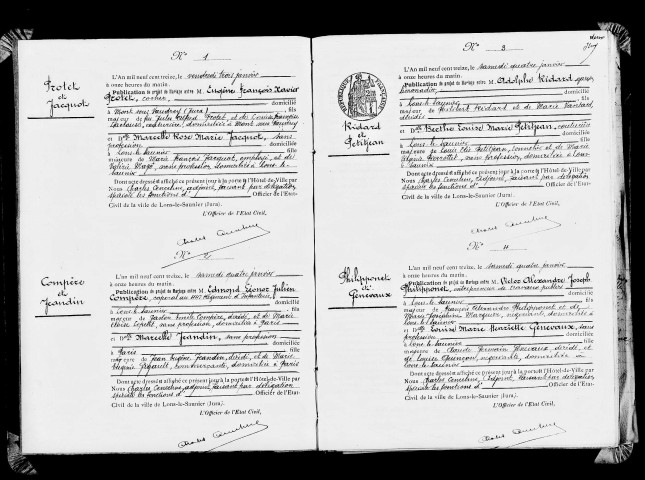 N° 1
Frotet
et
Jacquot
L'An mil neuf cent treize, le vendredi trois janvier
à onze heures du matin.
Publication de projet de Mariage entre M. Eugène François Xavier
Frotet, domicilié
à Mont sous Vaudrey (Jura), fils
majeur de Jules Alfred Frotet, et de Louise Françoise
domiciliés à Mont sous Vaudrey
et Dlle Marcelle Rose Marie Jacquot, sans
profession, domiciliée
à Lons le Saunier, fille
majeure de Marie François Jacquot, employé, et de
sans profession, domiciliés à Lons le
Saunier
Dont acte dressé et affiché ce présent jour à la porte de l'Hôtel-de-Ville par
Nous Charles adjoint, faisant par délégation
spéciale les fonctions d' Officier de l'Etat-
Civil de la ville de Lons-le-Saunier (Jura).
L'Officier de l'Etat Civil,
N° 2
Compère
et
Jeandin
L'An mil neuf cent treize, le samedi quatre janvier
à onze heures du matin.
Publication de projet de Mariage entre M. Edmond Léonor Julien
Compère, caporal au 44e Régiment d'Infanterie, domicilié
à Lons le Saunier, fils
majeur de Gaston Emile Compère, décédé, et de Marie
sans profession, domiciliée à Paris
et Dlle Marcelle Jeandin, sans profession
domiciliée
à Paris, fille
majeure de Jean Eugène Jeandin, décédé, et de Marie
Eugénie domiciliée à Paris
Dont acte dressé et affiché ce présent jour à la porte de l'Hôtel-de-Ville par
Nous Charles adjoint, faisant par délégation
spéciale les fonctions d' Officier de l'Etat-
Civil de la ville de Lons-le-Saunier (Jura).
L'Officier de l'Etat Civil,
N° 3
Ridard
et
Petitjean
L'An mil neuf cent treize, le samedi quatre janvier
à onze heures du matin.
Publication de projet de Mariage entre M. Adolphe Ridard, garçon
domicilié
à Lons le Saunier, fils
majeur de Ridard et de Marie
décédés
et Dlle Berthe Louise Marie Petitjean, couturière
domiciliée
à Lons le Saunier, fille
majeure de Louis Petitjean, et de Marie
sans profession, domiciliés à Lons le
Saunier
Dont acte dressé et affiché ce présent jour à la porte de l'Hôtel-de-Ville par
Nous Charles adjoint, faisant par délégation
spéciale les fonctions d' Officier de l'Etat-
Civil de la ville de Lons-le-Saunier (Jura).
L'Officier de l'Etat Civil,
N° 4
Philipponet
et
Genevaux
L'An mil neuf cent treize, le samedi quatre janvier
à onze heures du matin.
Publication de projet de Mariage entre M. Victor Alexandre Joseph
Philipponet, entrepreneur de travaux publics
domicilié
à Lons le Saunier, fils
majeur de François Alexandre Philipponet, et de
Marie Joséphine domiciliés à
Lons le Saunier
et Dlle Louise Marie Henriette Genevaux, sans
profession, domiciliée
à Lons le Saunier, fille
majeure de Claude Germain Genevaux, décédé, et
de Louise domiciliée à
Lons le Saunier
Dont acte dressé et affiché ce présent jour à la porte de l'Hôtel-de-Ville par
Nous Charles adjoint, faisant par délégation
spéciale les fonctions d' Officier de l'Etat-
Civil de la ville de Lons-le-Saunier (Jura).
L'Officier de l'Etat Civil,